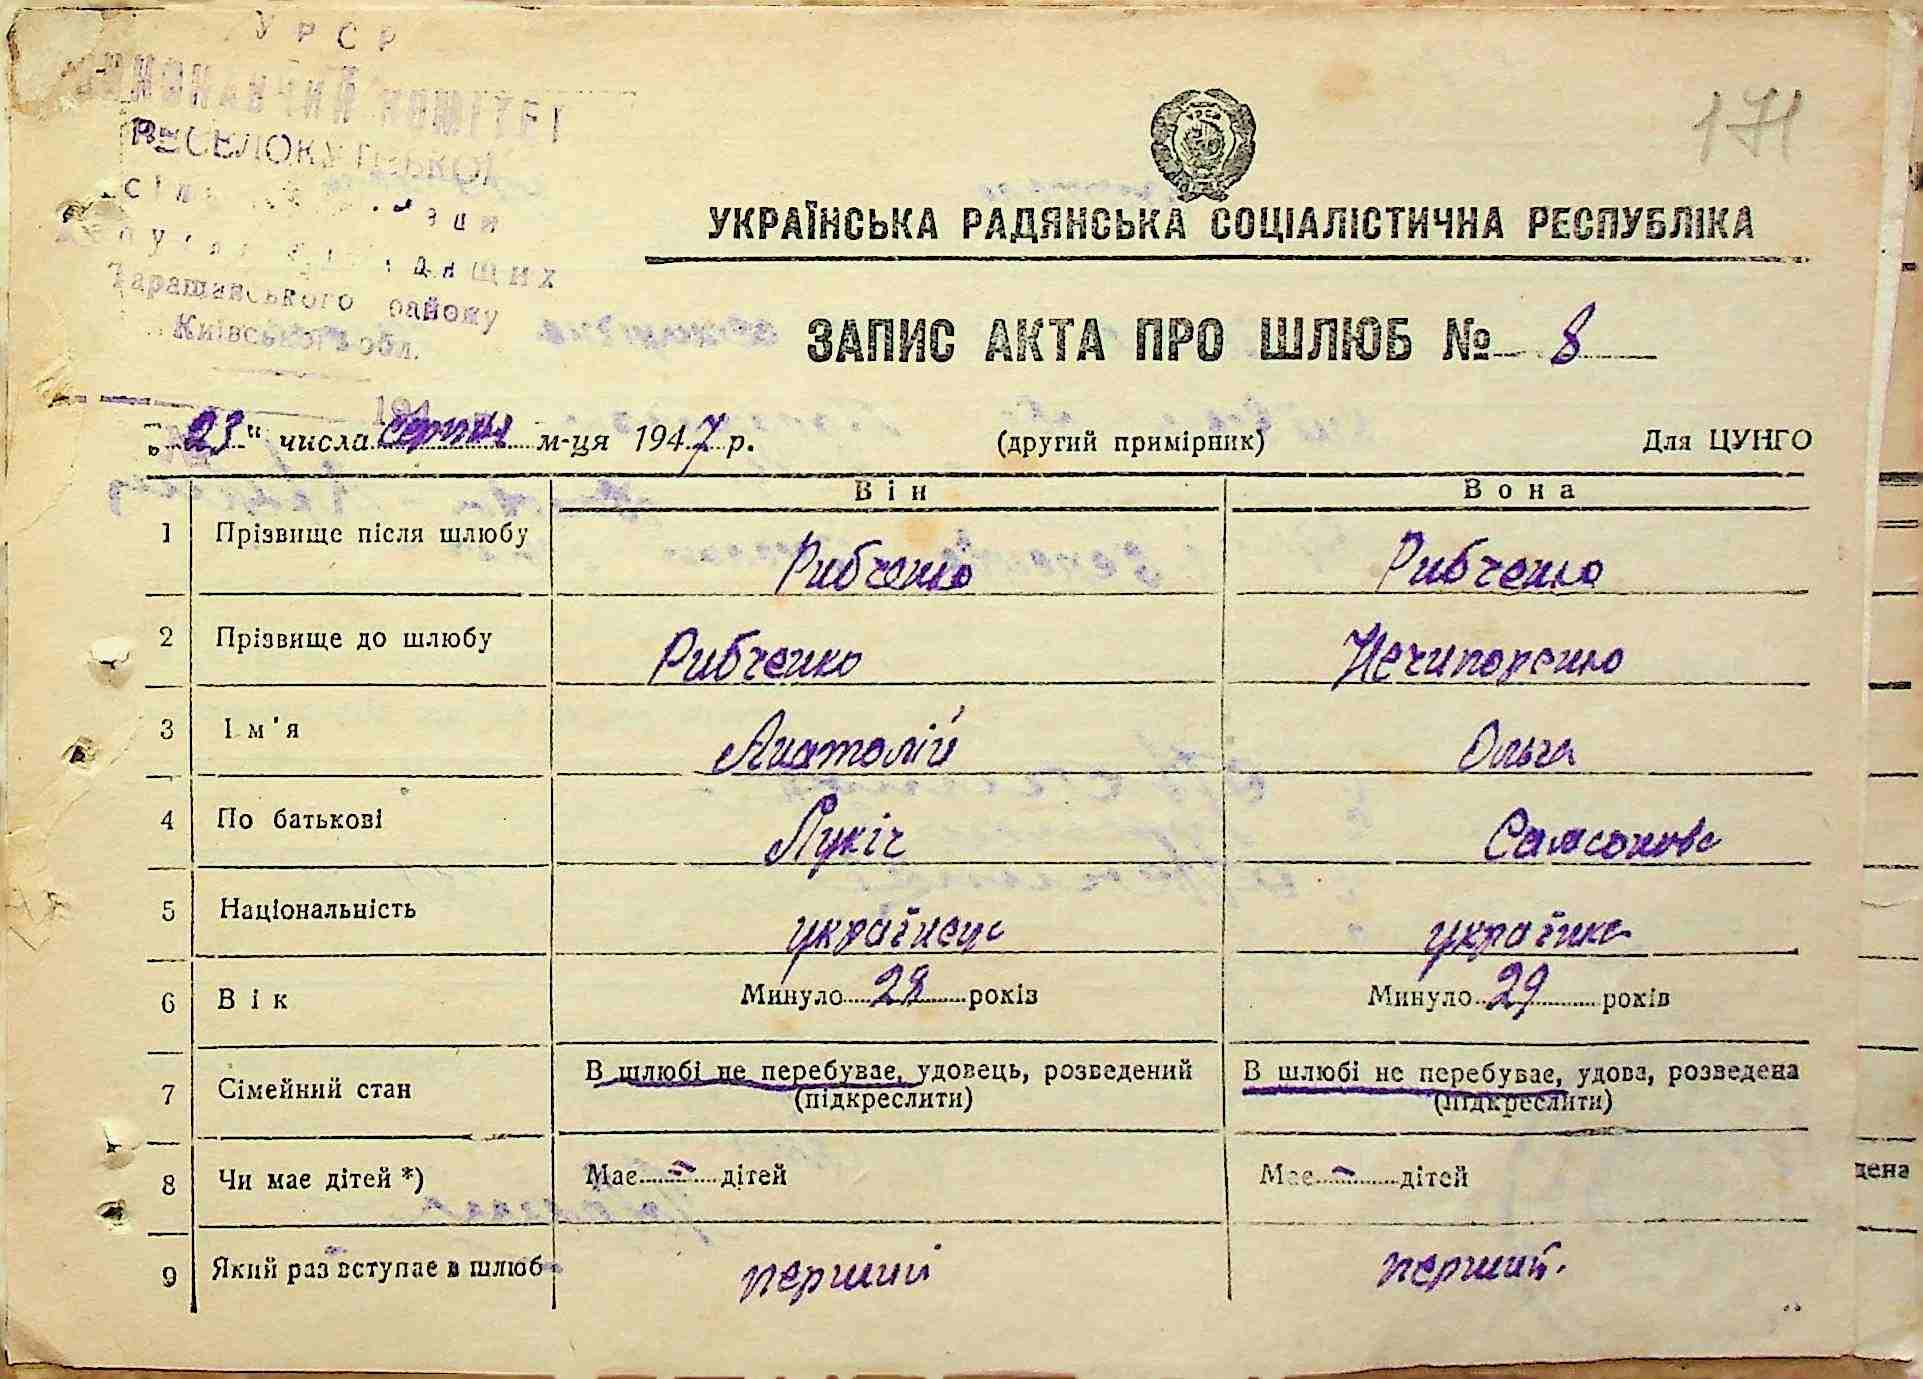 УРСР
ВИКОНАВЧИЙ КОМІТЕТ
ВЕСЕЛОКУТСЬКОЇ
Таращанського району
Київської обл.
194
171
УКРАЇНСЬКА РАДЯНСЬКА СОЦІАЛІСТИЧНА РЕСПУБЛІКА
ЗАПИС АКТА ПРО ШЛЮБ № 8
„23" числа серпня м-ця 1947 р. (другий примірник) Для ЦУНГО
Він Вона
1 Прізвище після шлюбу Рибченко Рибченко
2 Прізвище до шлюбу Рибченко Нечипоренко
3 Ім'я Анатолій Ольга
4 По батькові Лукіч Самсонова
5 Національність українець українка
6 Вік Минуло 28 років Минуло 29 років
7 Сімейний стан В шлюбі не перебуває, удовець, розведений В шлюбі не перебуває, удова, розведена
(підкреслити) (підкреслити)
8 Чи має дітей *) Має — дітей Має — дітей
дена
9 Який раз вступає в шлюб перший перший.